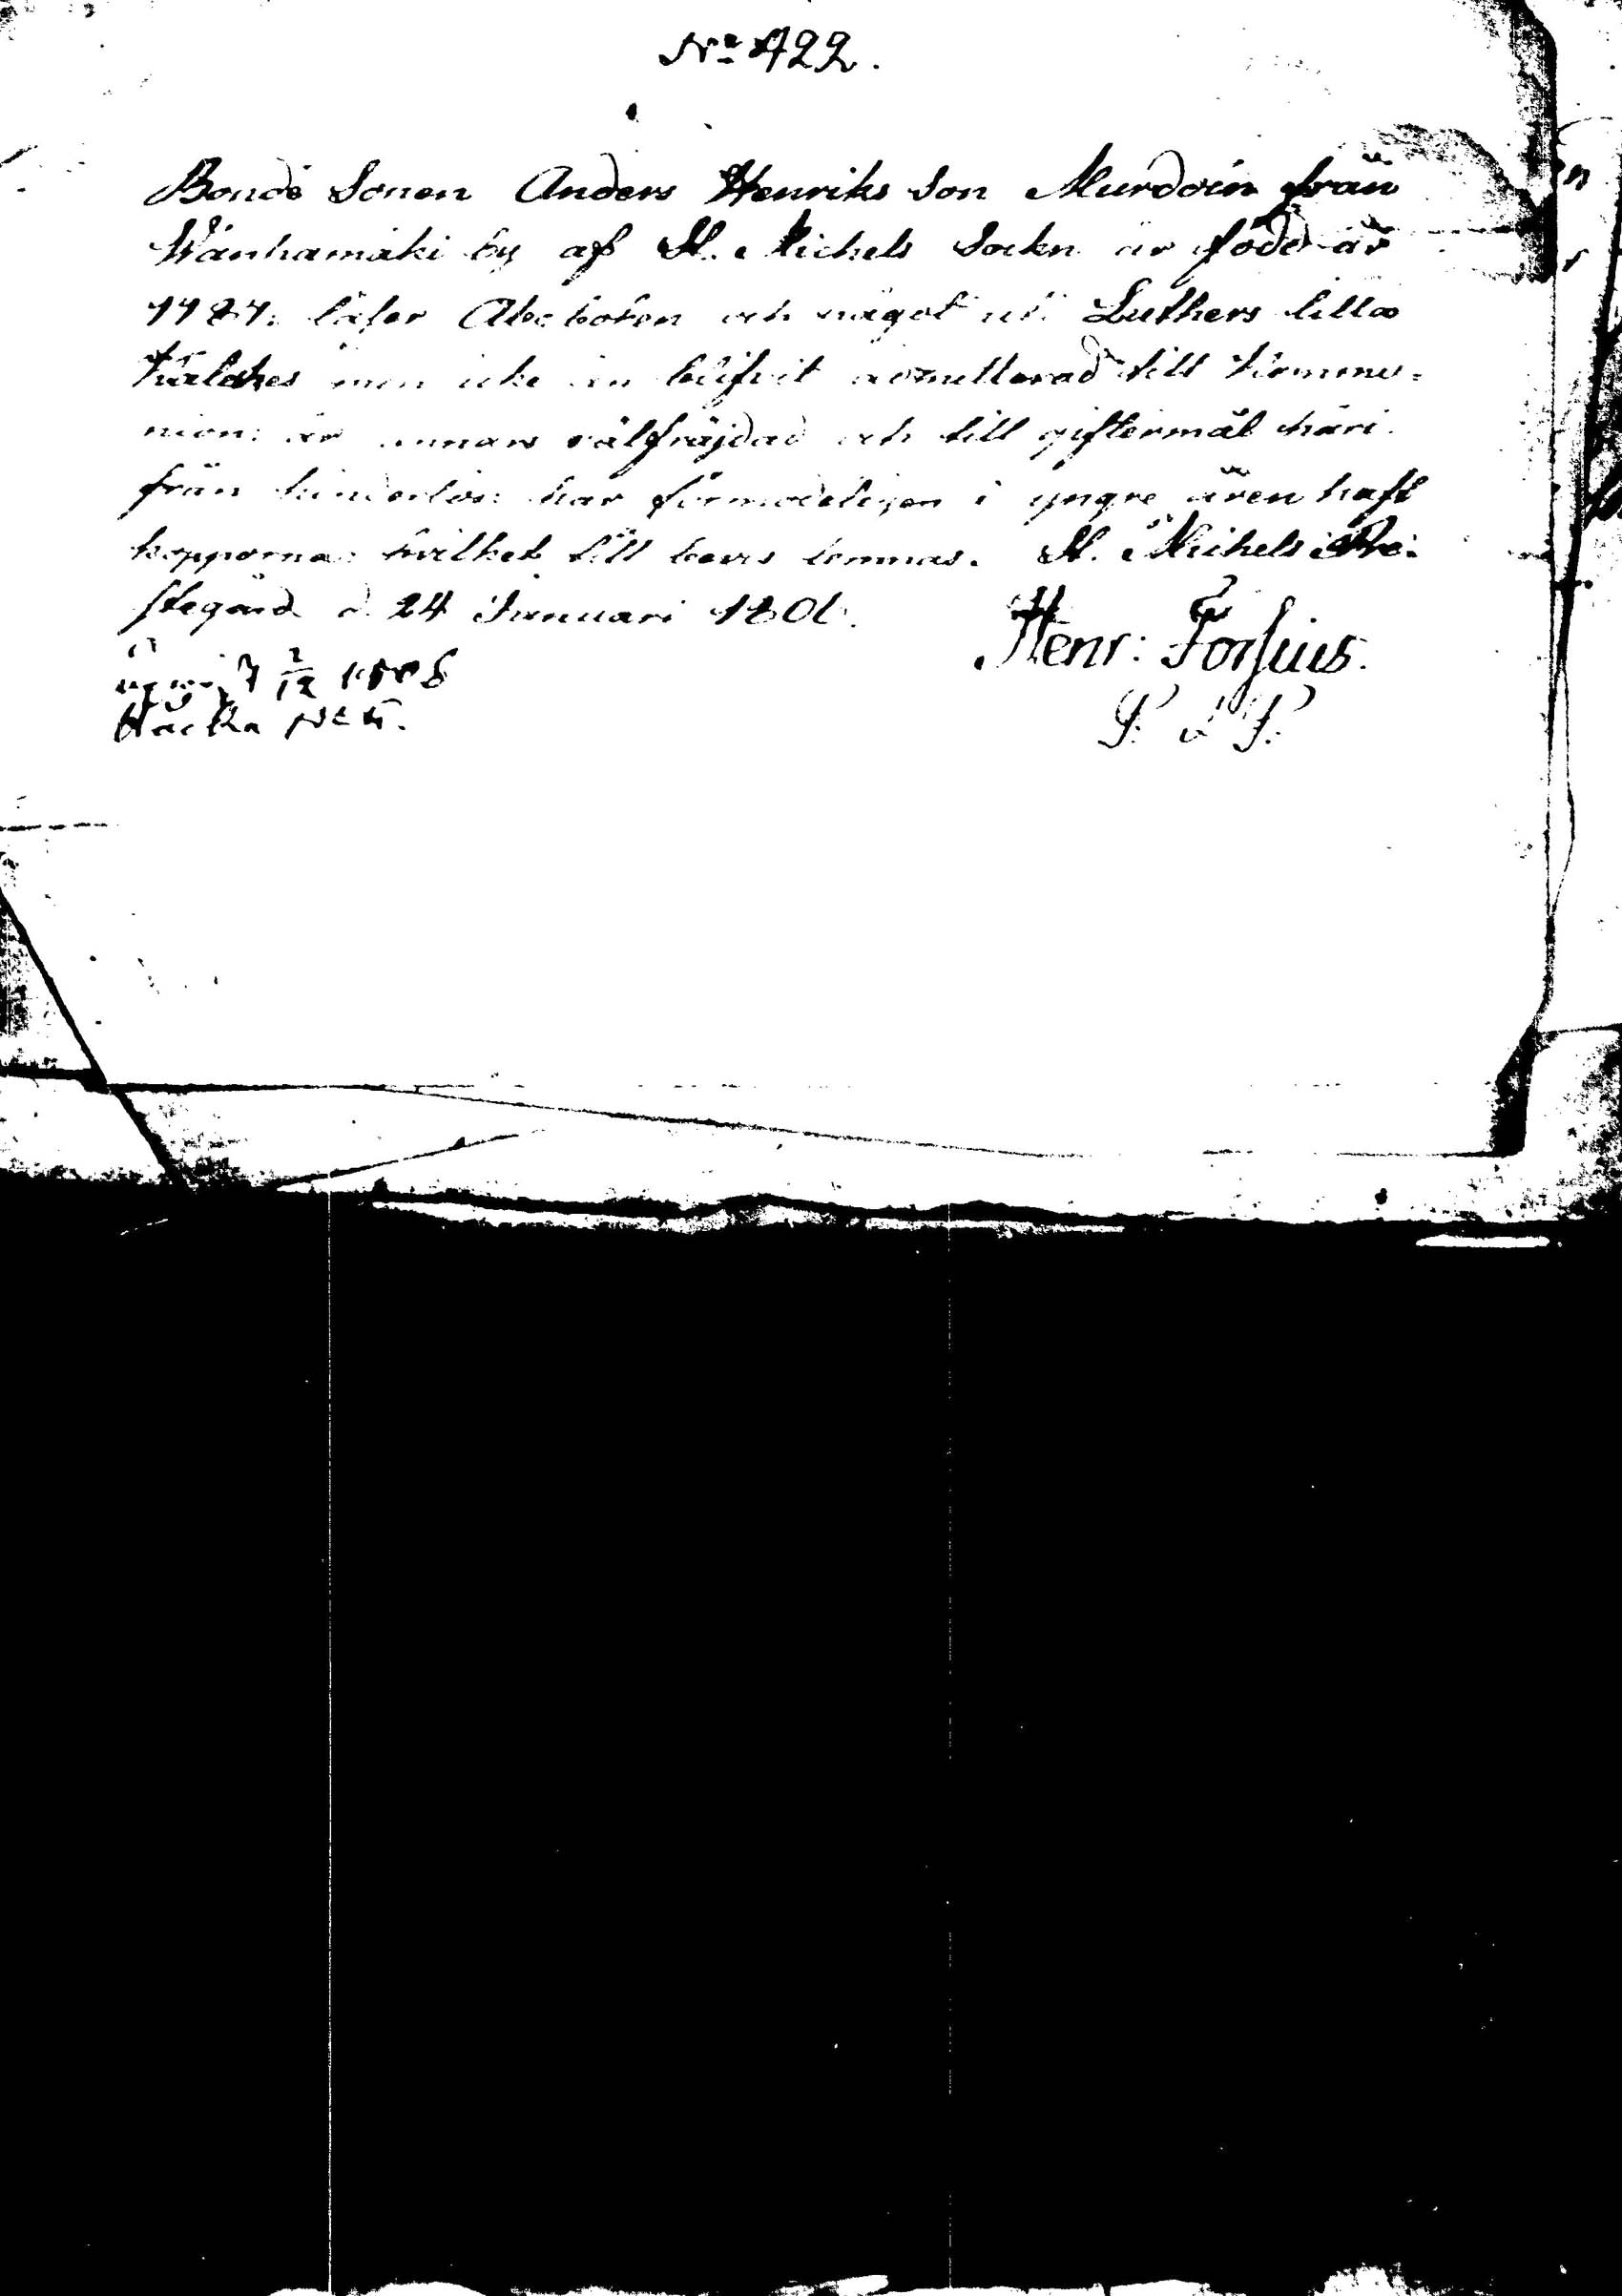 No 422.
Bonde Sonen Anders Henriks Son Murdoin från
Wanhamäki by af St. Michels Sockn är född år
1787: läser Abc boken och något uti Luthers lilla
Katches men icke än blifvit admitterad till Kommu=
nion: är annars välfräjdad och till giftermål häri
från hinderlös: har förmodeligen i yngre åren haft
kopporna: hvilket till bevis lemnas. St. Michels Pre:
stegård d. 24 Januari 1806.
Henr: Forsius.
Backa No 5.